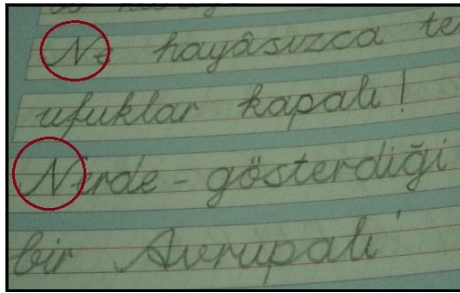 Ne hayâsızca
ufuklar kapalı!
Nerde - gösterdiği
bir Avrupalı'